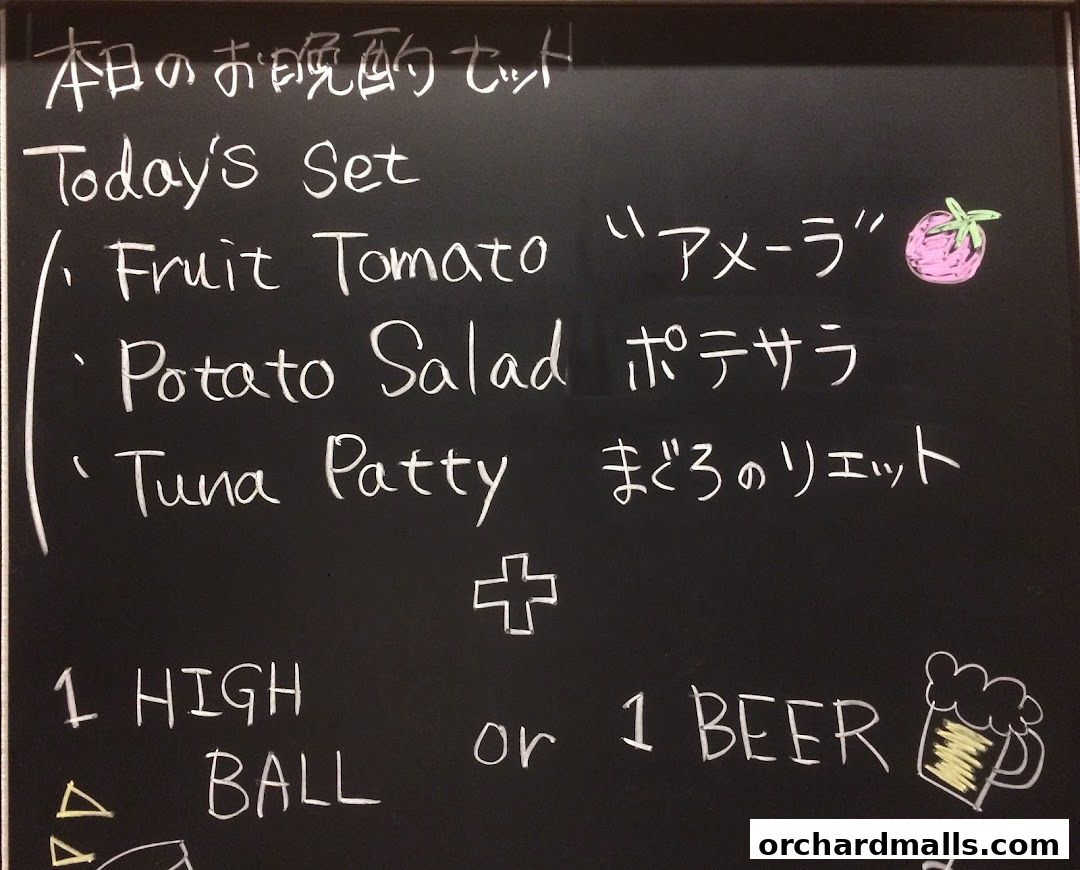 本日のお晩酌セット
Today's Set
・Fruit Tomato "アメーラ"
・Potato Salad ポテサラ
・Tuna Patty まぐろのリエット
+
1 HIGH BALL or 1 BEER
orchardmalls.com